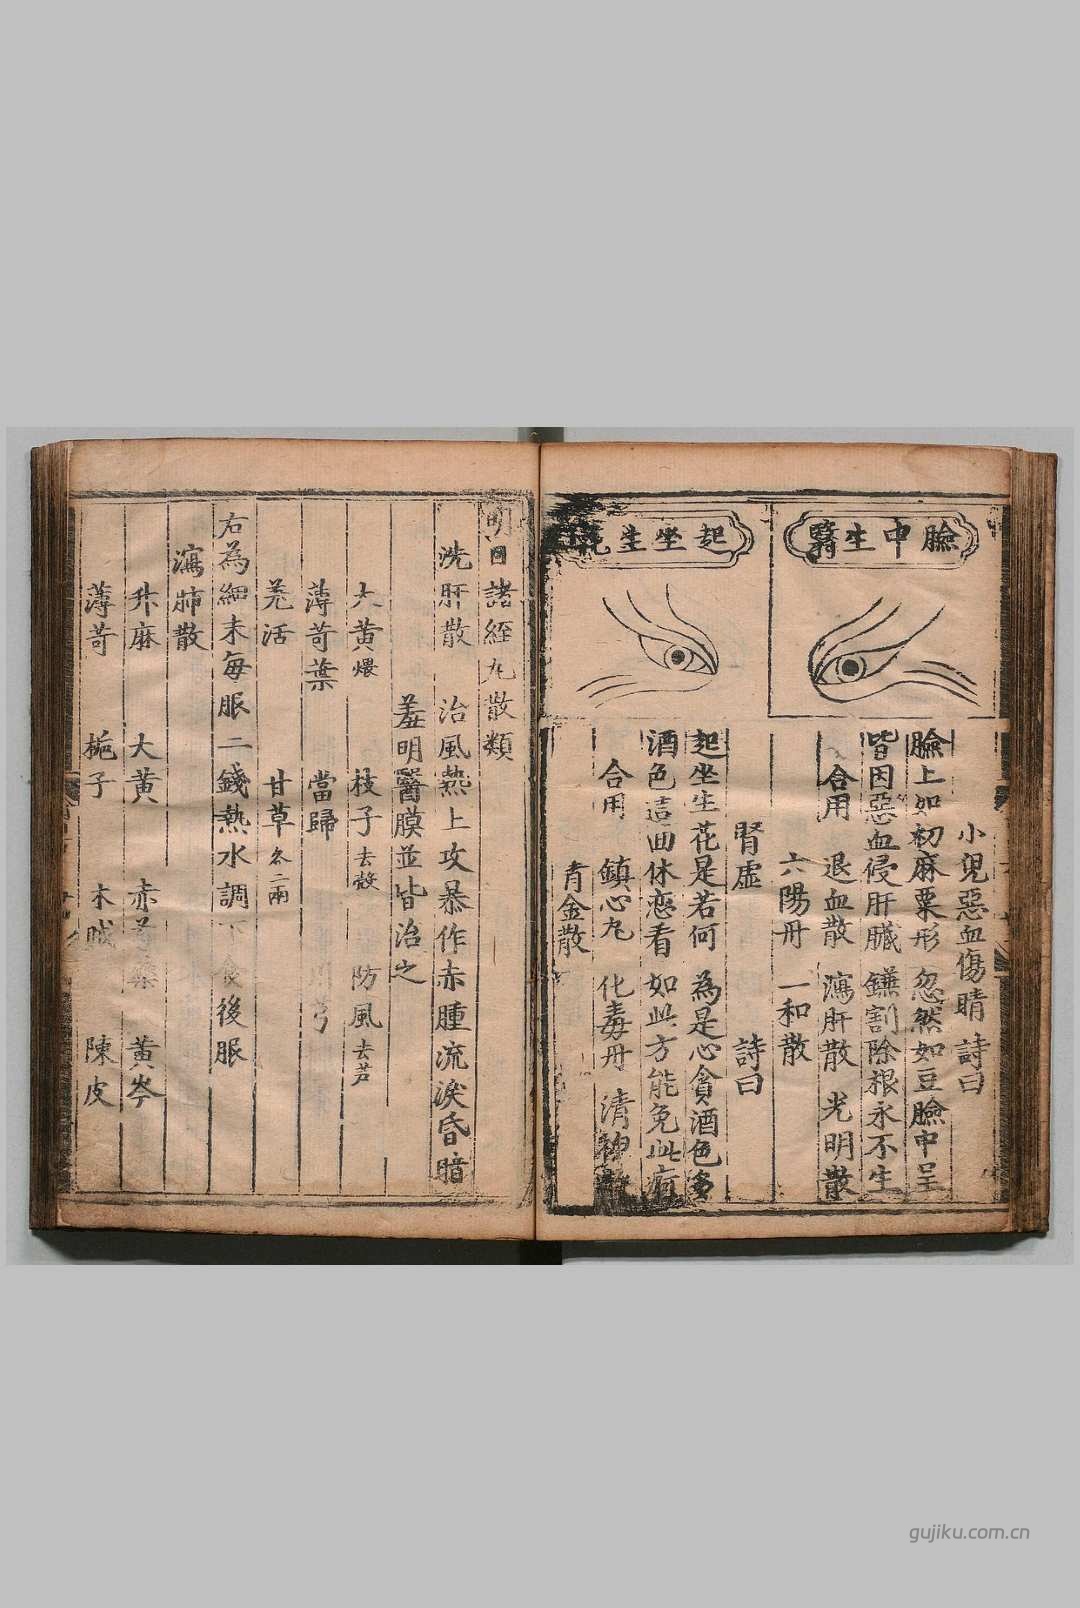 臉中生瞖
起坐生花
小兒惡血傷睛 詩曰
臉上如初麻粟形 忽然如豆臉中呈
皆因惡血侵肝臟 鐮割除根永不生
合用 退血散 瀉肝散 光明散
六陽丹 一和散
腎虛 詩曰
起坐生花是若何 為是心貪酒色多
酒色這曲休恋看 如此方能免此疴
合用 鎮心丸 化毒丹 清神散
青金散
明目諸經丸散類
洗肝散 治風熱上攻暴作赤腫流淚昏暗
羞明瞖膜並皆治之
大黃煨 枝子去殼 防風去芦
薄苛葉 當歸 川芎
羌活 甘草各二兩
右為細末每服二錢熱水調下食後服
瀉肺散
升麻 大黃 赤芍藥 黃岑
薄苛 梔子 木賊 陳皮
gujiku.com.cn